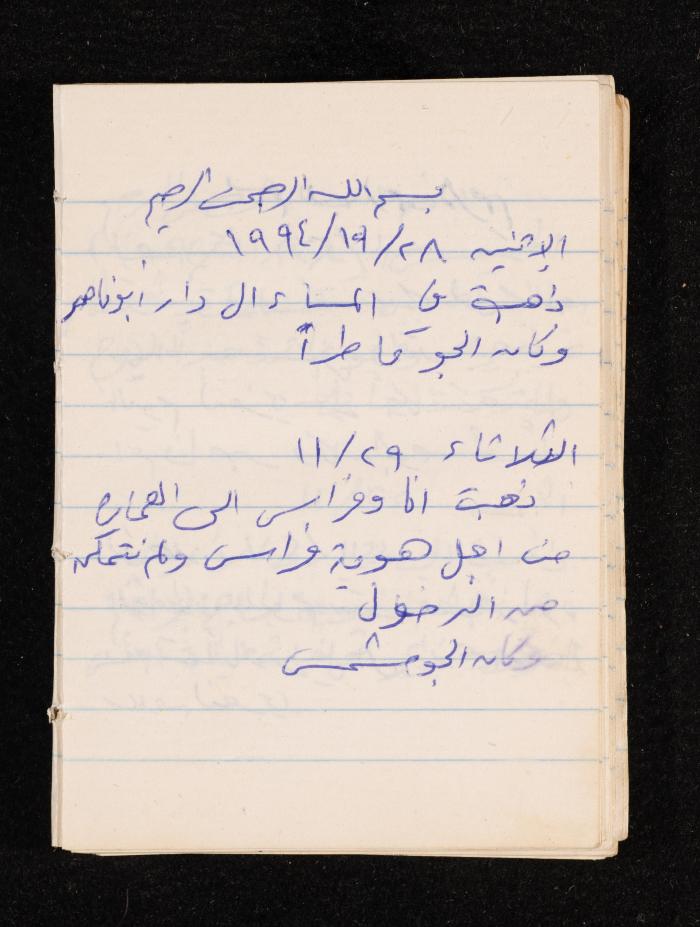 بسم الله الرحمن الرحيم
الاثنين ٢٨/١٩/١٩٩٤
ذهبت في المساء ال دار أبو ناصر
وكان الجو ماطراً
الثلاثاء ١١/٢٩
ذهبت انا وفراس الى العمارة
من اجل هوية فراس ولم نتمكن
من الدخول
وكان الجو مشمس